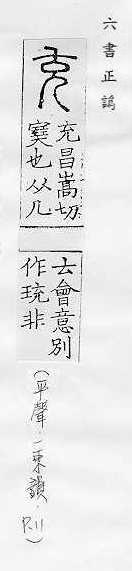 六書正譌
充昌嵩切
實也从儿
𠫓會意別
作珫非
(平聲.一東韻.P.11)